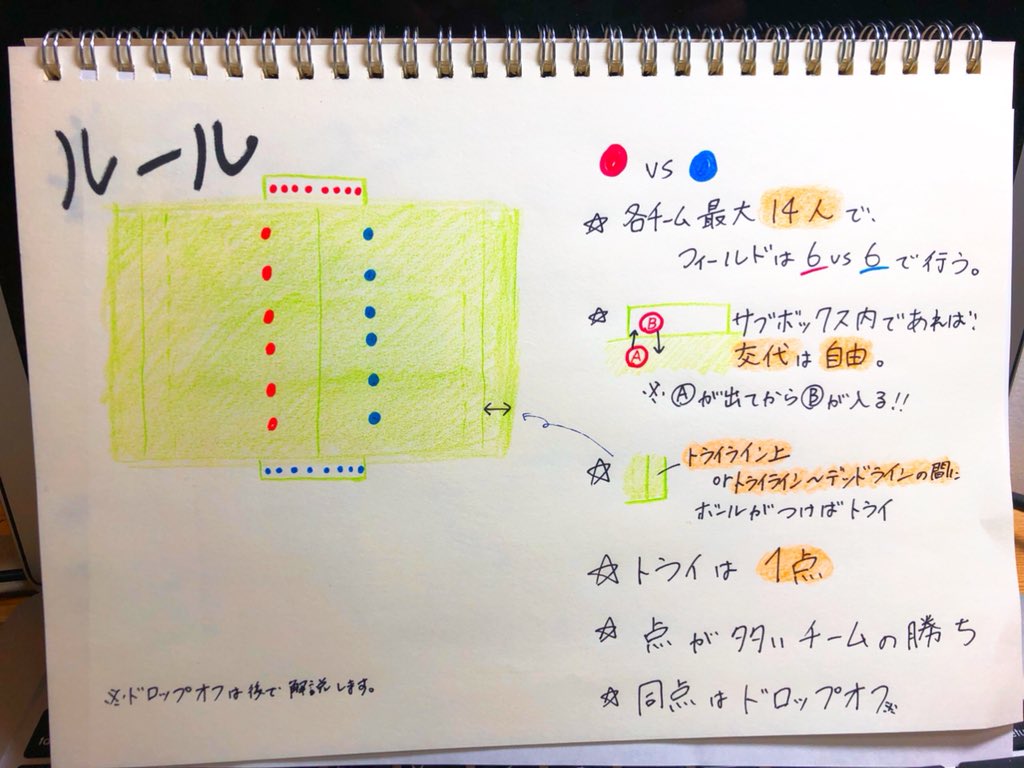 ルール
● vs ●
☆ 各チーム最大14人で、
フィールドは6vs6で行う。
☆ B A サブボックス内であれば
交代は自由。
※ⒶがЬ出てからⒷが入る!!
☆ トライライン上
orトライライン〜デッドラインの間に
ボールがつけばトライ
☆ トライは 1点
☆ 点が多いチームの勝ち
☆ 同点はドロップオフ※
※ドロップオフは後で解説します。